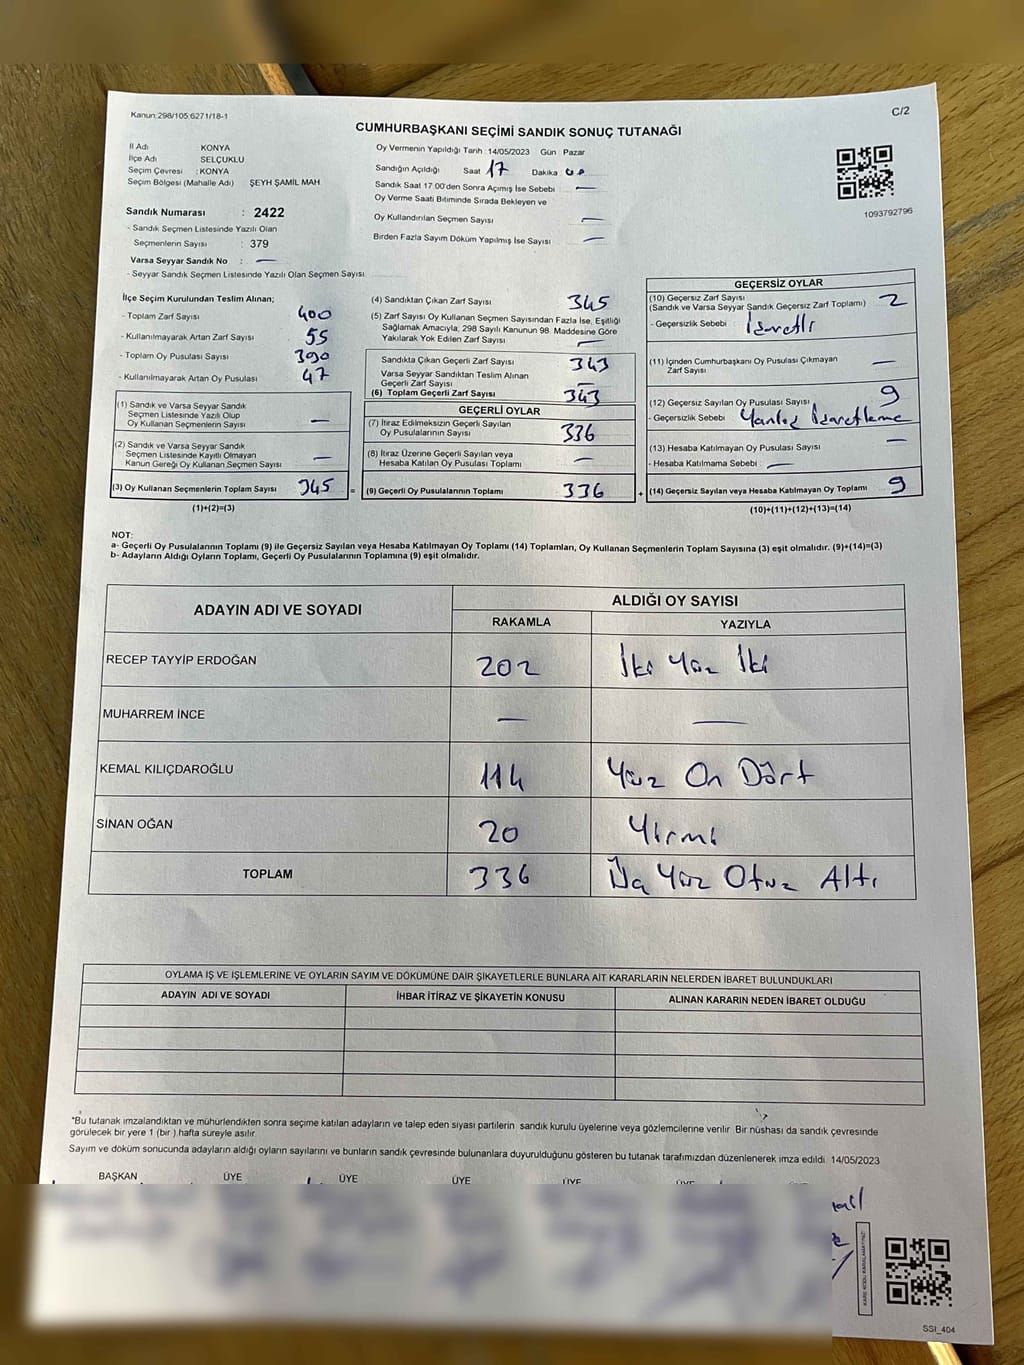 Kanun:298/105:6271/18-1
C/2
CUMHURBAŞKANI SEÇİMİ SANDIK SONUÇ TUTANAĞI
İl Adı KONYA
İlçe Adı SELÇUKLU
Seçim Çevresi : KONYA
Seçim Bölgesi (Mahalle Adı) ŞEYH ŞAMİL MAH
Sandık Numarası : 2422
- Sandık Seçmen Listesinde Yazılı Olan
Seçmenlerin Sayısı : 379
Varsa Seyyar Sandık No : —
- Seyyar Sandık Seçmen Listesinde Yazılı Olan Seçmen Sayısı
Oy Vermenin Yapıldığı Tarih : 14/05/2023 Gün : Pazar
Sandığın Açıldığı Saat 17 Dakika
Sandık Saat 17:00'den Sonra Açımış İse Sebebi —
Oy Verme Saati Bitiminde Sırada Bekleyen ve
Oy Kullandırılan Seçmen Sayısı —
Birden Fazla Sayım Döküm Yapılmış İse Sayısı —
1093792796
İlçe Seçim Kurulundan Teslim Alınan;
- Toplam Zarf Sayısı 400
- Kullanılmayarak Artan Zarf Sayısı 55
- Toplam Oy Pusulası Sayısı 390
- Kullanılmayarak Artan Oy Pusulası 47
(1) Sandık ve Varsa Seyyar Sandık
Seçmen Listesinde Yazılı Olup
Oy Kullanan Seçmenlerin Sayısı —
(2) Sandık ve Varsa Seyyar Sandık
Seçmen Listesinde Kayıtlı Olmayan
Kanun Gereği Oy Kullanan Seçmen Sayısı —
(3) Oy Kullanan Seçmenlerin Toplam Sayısı 345 =
(1)+(2)=(3)
(4) Sandıktan Çıkan Zarf Sayısı 345
(5) Zarf Sayısı Oy Kullanan Seçmen Sayısından Fazla İse, Eşitliği
Sağlamak Amacıyla; 298 Sayılı Kanunun 98. Maddesine Göre
Yakılarak Yok Edilen Zarf Sayısı —
Sandıkta Çıkan Geçerli Zarf Sayısı 343
Varsa Seyyar Sandıktan Teslim Alınan
Geçerli Zarf Sayısı —
(6) Toplam Geçerli Zarf Sayısı 343
GEÇERLİ OYLAR
(7) İtiraz Edilmeksizin Geçerli Sayılan
Oy Pusulalarının Sayısı 336
(8) İtiraz Üzerine Geçerli Sayılan veya
Hesaba Katılan Oy Pusulası Toplamı —
(9) Geçerli Oy Pusulalarının Toplamı 336 +
GEÇERSİZ OYLAR
(10) Geçersiz Zarf Sayısı
(Sandık ve Varsa Seyyar Sandık Geçersiz Zarf Toplamı) 2
- Geçersizlik Sebebi : İşaretli
(11) İçinden Cumhurbaşkanı Oy Pusulası Çıkmayan
Zarf Sayısı —
(12) Geçersiz Sayılan Oy Pusulası Sayısı 9
- Geçersizlik Sebebi : Yanlış İşaretleme
(13) Hesaba Katılmayan Oy Pusulası Sayısı —
- Hesaba Katılmama Sebebi : —
(14) Geçersiz Sayılan veya Hesaba Katılmayan Oy Toplamı 9
(10)+(11)+(12)+(13)=(14)
NOT:
a- Geçerli Oy Pusulalarının Toplamı (9) ile Geçersiz Sayılan veya Hesaba Katılmayan Oy Toplamı (14) Toplamları, Oy Kullanan Seçmenlerin Toplam Sayısına (3) eşit olmalıdır. (9)+(14)=(3)
b- Adayların Aldığı Oyların Toplamı, Geçerli Oy Pusulalarının Toplamına (9) eşit olmalıdır.
ADAYIN ADI VE SOYADI ALDIĞI OY SAYISI
RAKAMLA YAZIYLA
RECEP TAYYİP ERDOĞAN 202 İki Yüz İki
MUHARREM İNCE — —
KEMAL KILIÇDAROĞLU 114 Yüz On Dört
SİNAN OĞAN 20 Yirmi
TOPLAM 336 Üç Yüz Otuz Altı
OYLAMA İŞ VE İŞLEMLERİNE VE OYLARIN SAYIM VE DÖKÜMÜNE DAİR ŞİKAYETLERLE BUNLARA AİT KARARLARIN NELERDEN İBARET BULUNDUKLARI
ADAYIN ADI VE SOYADI İHBAR İTİRAZ VE ŞİKAYETİN KONUSU ALINAN KARARIN NEDEN İBARET OLDUĞU
*Bu tutanak imzalandıktan ve mühürlendikten sonra seçime katılan adayların ve talep eden siyasi partilerin sandık kurulu üyelerine veya gözlemcilerine verilir. Bir nüshası da sandık çevresinde
görülecek bir yere 1 (bir) hafta süreyle asılır
Sayım ve döküm sonucunda adayların aldığı oyların sayılarını ve bunların sandık çevresinde bulunanlara duyurulduğunu gösteren bu tutanak tarafımızdan düzenlenerek imza edildi. 14/05/2023
BAŞKAN ÜYE ÜYE ÜYE ÜYE ÜYE
KARE KODU KARALAMAYINIZ
SSI_404